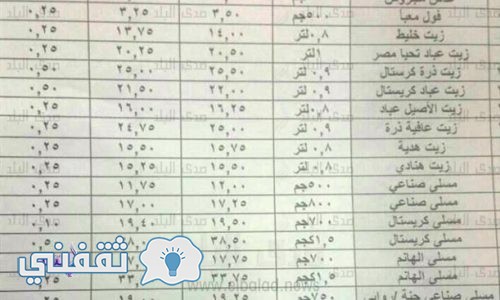 فول معبأ ٣,٥٠ ٣,٢٥ ٠,٢٥
زيت خليط ٠,٨لتر ١٤,٠٠ ١٣,٧٥ ٠,٢٥
زيت عباد تحيا مصر ١لتر ٢٠,٥٠ ٢٠,٢٥ ٠,٢٥
زيت ذرة كرستال ٠,٩ لتر ٢٥,٥٠ ٢٥,٠٠ ٠,٥٠
زيت عباد كريستال ٠,٩ لتر ٢٢,٠٠ ٢١,٥٠ ٠,٥٠
زيت الأصيل عباد ٠,٨لتر ١٦,٢٥ ١٦,٠٠ ٠,٢٥
زيت عافية ذرة ٠,٩ لتر ٢٥,٠٠ ٢٤,٧٥ ٠,٢٥
زيت هدية ٠,٨ لتر ١٥,٧٥ ١٥,٥٠ ٠,٢٥
زيت هنادي ٠,٨ لتر ١٥,٥٠ ١٥,٢٥ ٠,٢٥
مسلى صناعي ٥٠٠جم ١٢,٠٠ ١١,٧٥ ٠,٢٥
مسلى صناعي ٨٠٠جم ١٧,٢٥ ١٧,٠٠ ٠,٢٥
مسلى كريستال ٧٠٠جم ١٩,٥٠
مسلى كريستال ١,٥كجم ٣٨,٥٠
مسلى الهانم ٧٠٠جم
مسلى الهانم ١,٥كجم
مسلى صناعي جنة
ثقفني